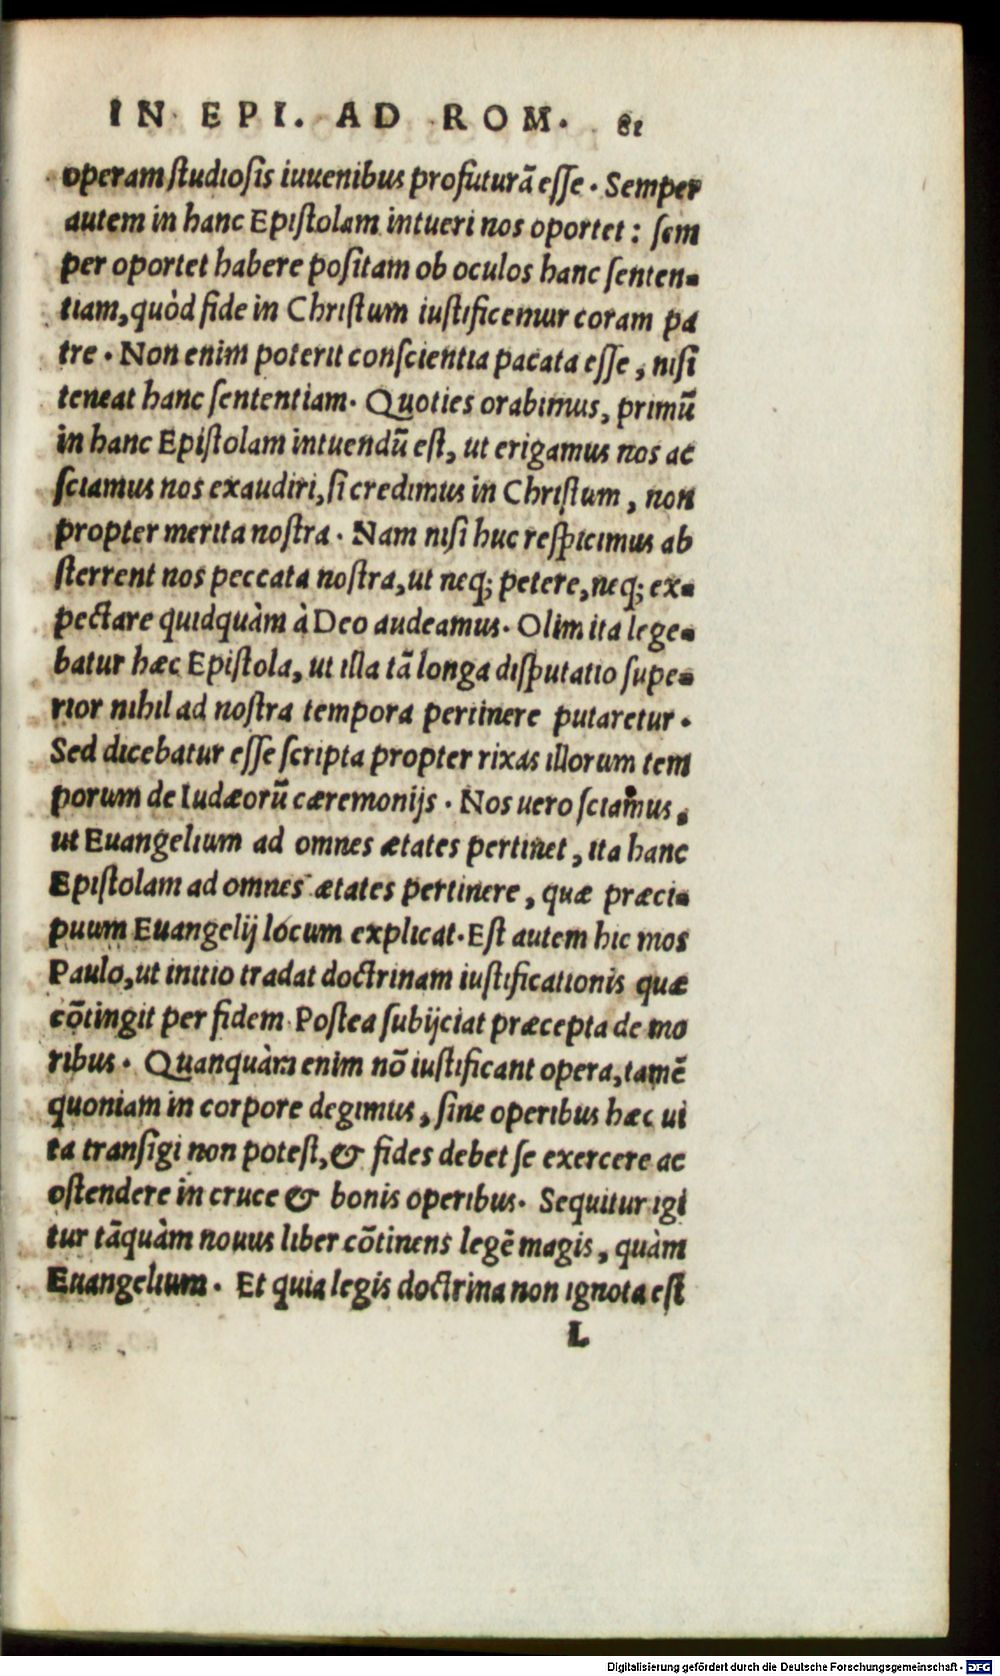 IN EPI. AD ROM. 81
operam studiosis iuuenibus profuturā esse. Semper
autem in hanc Epistolam intueri nos oportet: sem
per oportet habere positam ob oculos hanc senten-
tiam, quòd fide in Christum iustificemur coram pa
tre. Non enim poterit conscientia pacata esse, nisi
teneat hanc sententiam. Quoties orabimus, primū
in hanc Epistolam intuendū est, ut erigamus nos ac
sciamus nos exaudiri, si credimus in Christum, non
propter merita nostra. Nam nisi huc respicimus ab
sterrent nos peccata nostra, ut neq; petere, neq; ex-
pectare quidquàm à Deo audeamus. Olim ita lege-
batur hæc Epistola, ut illa tā longa disputatio supe-
rior nihil ad nostra tempora pertinere putaretur.
Sed dicebatur esse scripta propter rixas illorum tem
porum de Iudæorū cæremonijs. Nos uero sciamus,
ut Euangelium ad omnes ætates pertinet, ita hanc
Epistolam ad omnes ætates pertinere, quæ præci-
puum Euangelij locum explicat. Est autem hic mos
Paulo, ut initio tradat doctrinam iustificationis quæ
cōtingit per fidem. Postea subijciat præcepta de mo
ribus. Quanquàm enim nō iustificant opera, tamē
quoniam in corpore degimus, sine operibus hæc ui
ta transigi non potest, & fides debet se exercere ac
ostendere in cruce & bonis operibus. Sequitur igi
tur tāquàm nouus liber cōtinens legē magis, quàm
Euangelium. Et quia legis doctrina non ignota est
L
Digitalisierung gefördert durch die Deutsche Forschungsgemeinschaft - DFG